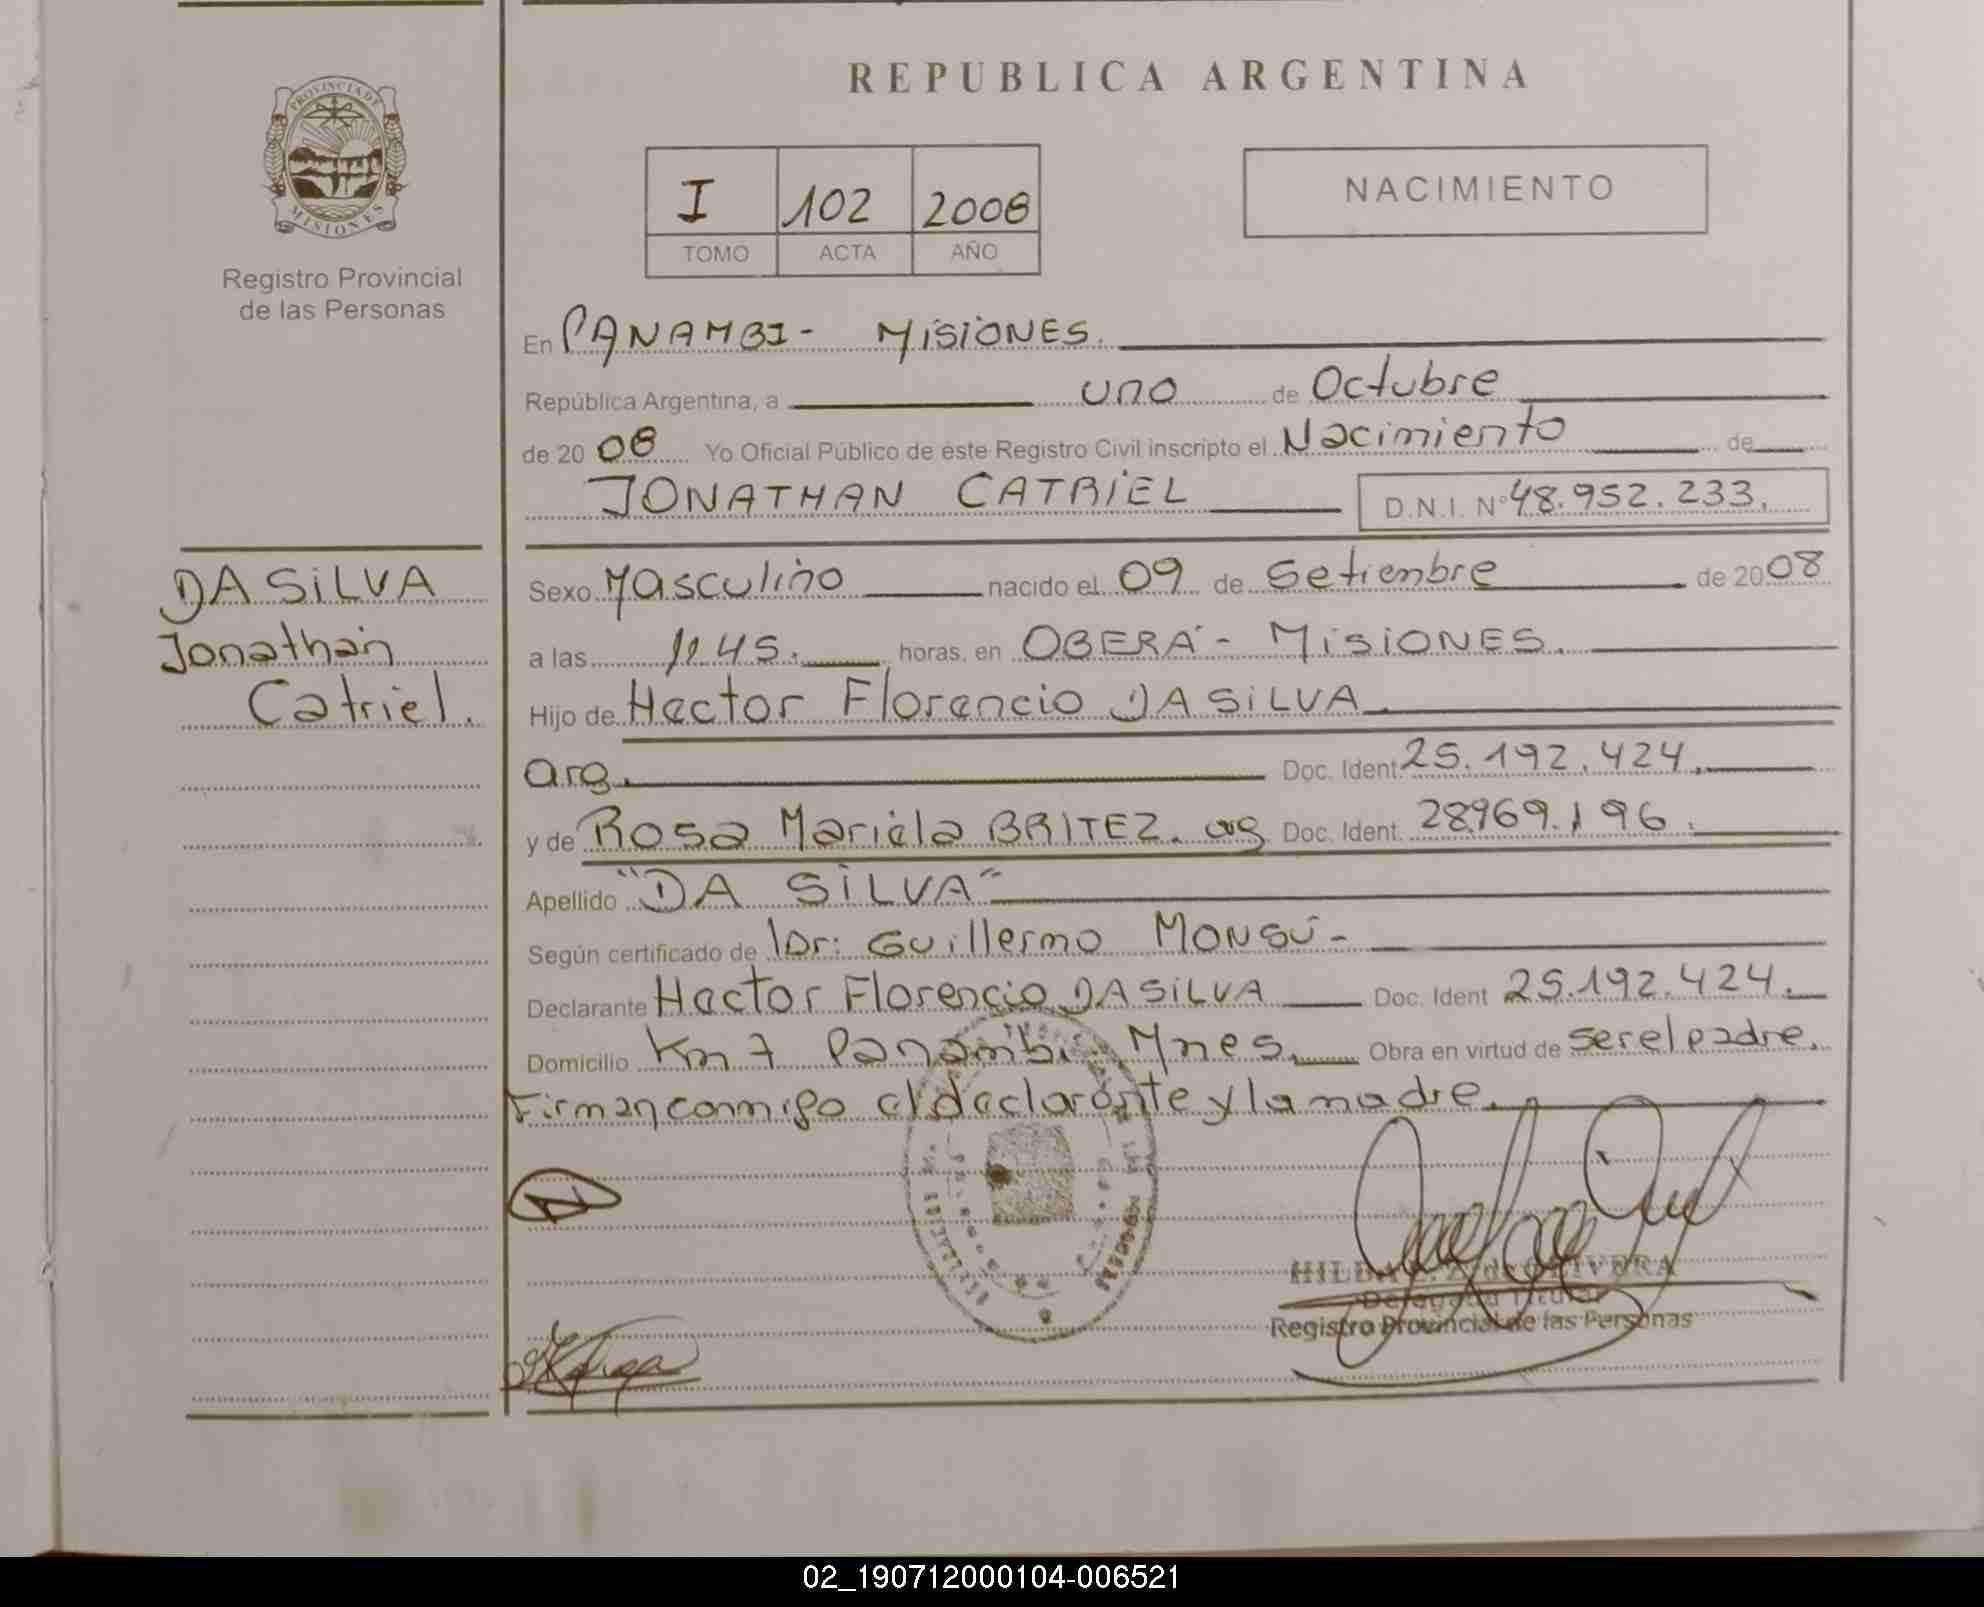 PROVINCIA DE
MISIONES
Registro Provincial
de las Personas
DA SiLVA
Jonathan
Catriel.
REPUBLICA ARGENTINA
I 102 2008
TOMO ACTA AÑO
NACIMIENTO
En PANAMBI- MiSiONES.
República Argentina, a uno de Octubre
de 2008 Yo Oficial Público de éste Registro Civil inscripto el Nacimiento de
JONATHAN CATRiEL D.N.I. Nº 48.952.233.
Sexo Masculino nacido el 09 de Setiembre de 2008
a las 11.45. horas, en OBERA - MiSiONES.
Hijo de Hector Florencio DA SiLVA.
arg. Doc. Ident. 25.192.424.
y de Rosa Mariela BRITEZ. arg Doc. Ident. 28969.196.
Apellido "DA SiLVA"
Según certificado de Dr: Guillermo MONSÚ-
Declarante Hector Florencio DA SiLVA Doc. Ident 25.192.424.
Domicilio Km 7 Panambi Mnes. Obra en virtud de ser el padre.
Firman conmigo el declarante y la madre.
Delegada Titular
Registro Provincial de las Personas
02_190712000104-006521